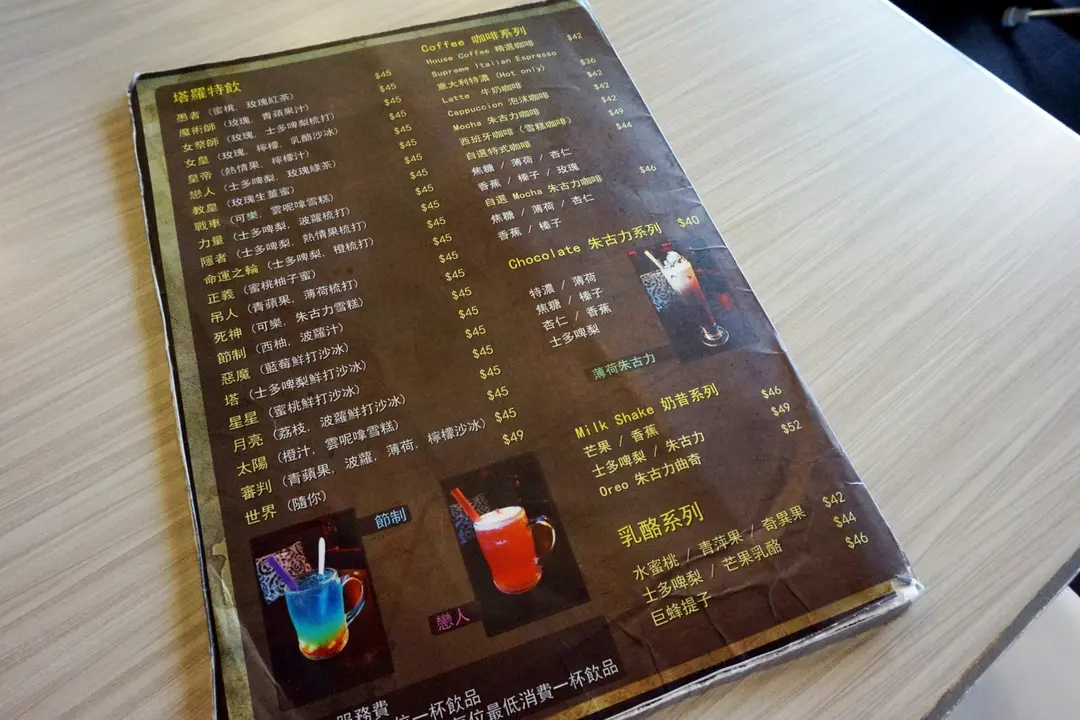 塔羅特飲
愚者 (蜜桃, 玫瑰紅茶) $45
魔術師 (玫瑰, 青蘋果汁) $45
女祭師 (玫瑰, 士多啤梨梳打) $45
女皇 (玫瑰, 檸檬, 乳酪沙冰) $45
皇帝 (熱情果, 檸檬汁) $45
戀人 (士多啤梨, 玫瑰綠茶) $45
教皇 (玫瑰生薑蜜) $45
戰車 (可樂, 雲呢拿雪糕) $45
力量 (士多啤梨, 波蘿梳打) $45
隱者 (士多啤梨, 熱情果梳打) $45
命運之輪 (士多啤梨, 橙梳打) $45
正義 (蜜桃柚子蜜) $45
吊人 (青蘋果, 薄荷梳打) $45
死神 (可樂, 朱古力雪糕) $45
節制 (西柚, 波蘿汁) $45
惡魔 (藍莓鮮打沙冰) $45
塔 (士多啤梨鮮打沙冰) $45
星星 (蜜桃鮮打沙冰) $45
月亮 (荔枝, 波蘿鮮打沙冰) $45
太陽 (橙汁, 雲呢拿雪糕) $45
審判 (青蘋果, 波蘿, 薄荷, 檸檬沙冰) $45
世界 (隨你) $49
節制
戀人
Coffee 咖啡系列
House Coffee 精選咖啡 $42
Supreme Italian Espresso
意大利特濃 (Hot only) $36
Latte 牛奶咖啡 $42
Cappuccion 泡沫咖啡 $42
Mocha 朱古力咖啡 $42
西班牙咖啡 (雪糕咖啡) $49
自選特式咖啡 $44
焦糖 / 薄荷 / 杏仁
香蕉 / 榛子 / 玫瑰
自選 Mocha 朱古力咖啡 $46
焦糖 / 薄荷 / 杏仁
香蕉 / 榛子
Chocolate 朱古力系列 $40
特濃 / 薄荷
焦糖 / 榛子
杏仁 / 香蕉
士多啤梨
薄荷朱古力
Milk Shake 奶昔系列
芒果 / 香蕉 $46
士多啤梨 / 朱古力 $49
Oreo 朱古力曲奇 $52
乳酪系列
水蜜桃 / 青萍果 / 奇異果 $42
士多啤梨 / 芒果乳酪 $44
巨蜂提子 $46
服務費
一杯飲品
位最低消費一杯飲品